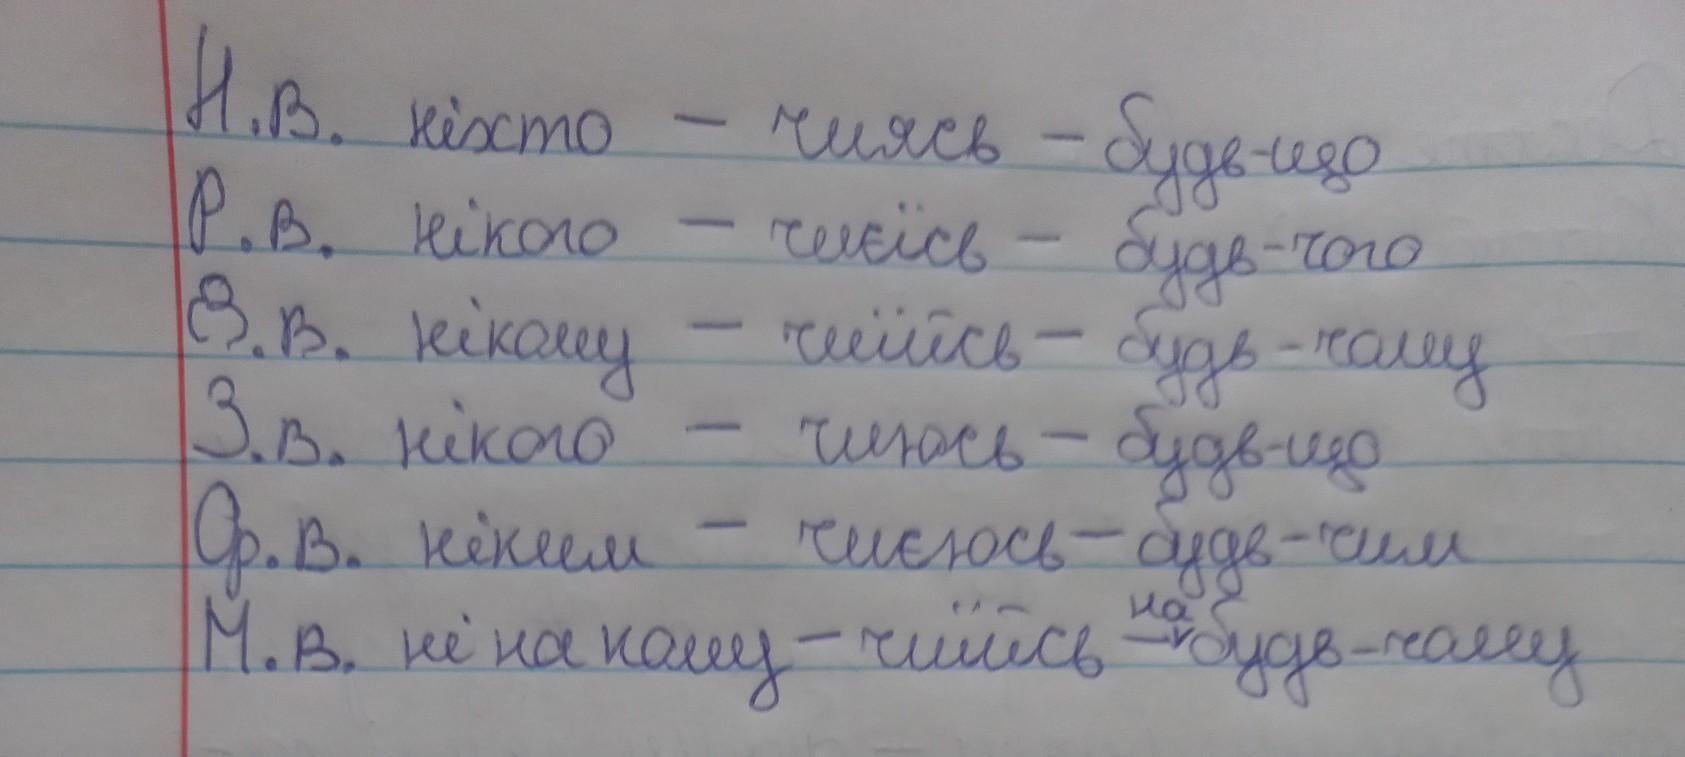 Н.В. ніхто – чиясь – будь-що
Р.В. нікого – чиєїсь – будь-чого
Д.В. нікому – чиїйсь – будь-чому
З.В. нікого – чиюсь – будь-що
Ор.В. ніким – чиєюсь – будь-чим
М.В. ні на кому – чиїйсь – на будь-чому